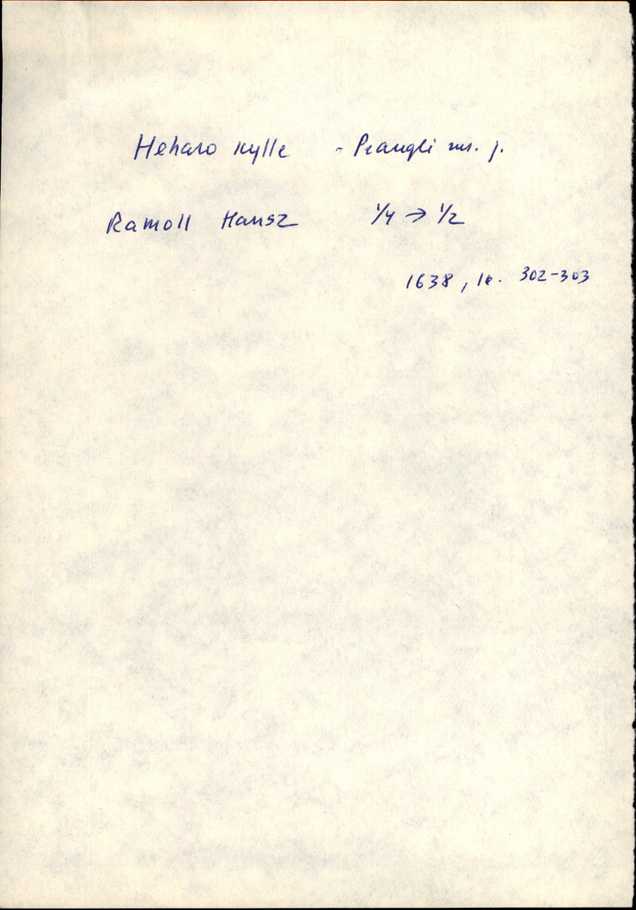 Heharo Kylle - Prangli mr. j.
Ramoll Hansz 1/4 → 1/2
1638, lk. 302-303